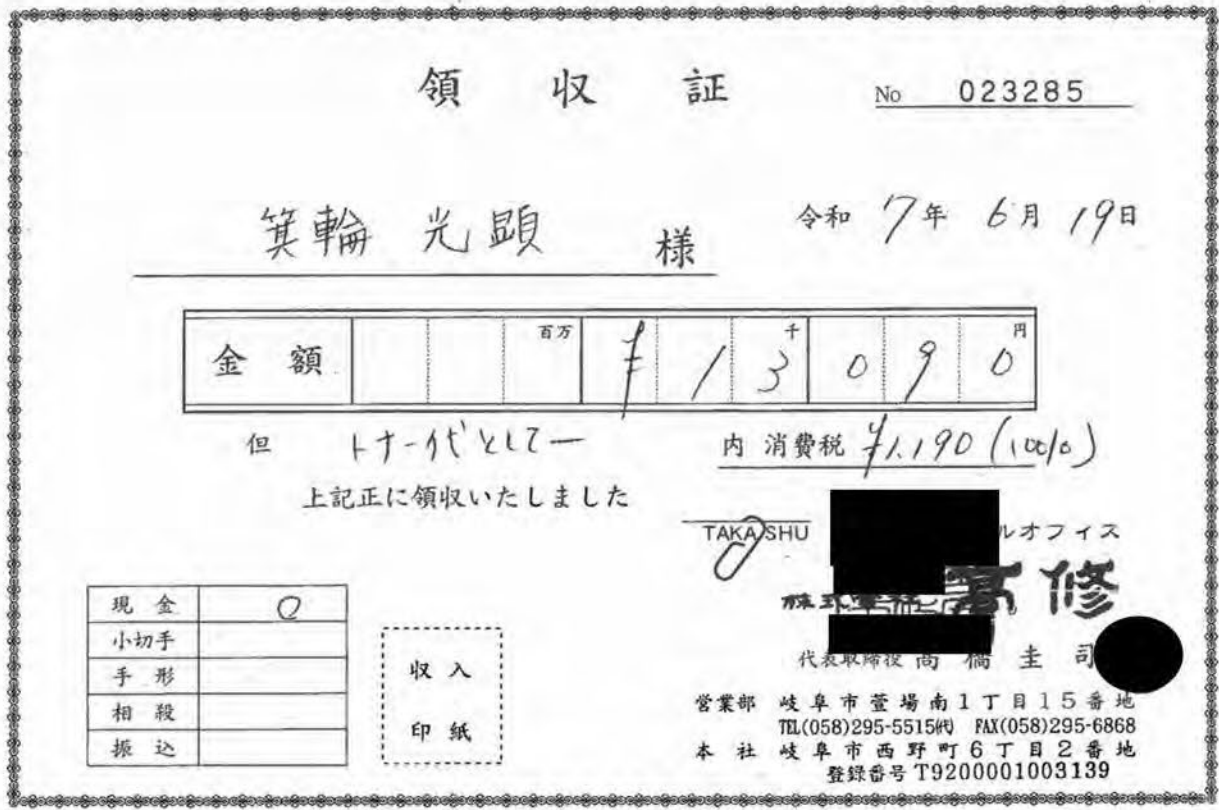 領収証
No 023285
箕輪 光顕 様
令和 7年 6月 19日
金額 百万 ¥ 1 3千 0 9 0円
但 トナー代として一
内 消費税 ¥1,190 (10%)
上記正に領収いたしました
TAKA SHU ルオフィス
株式会社 高修
代表取締役 高橋圭司
現金 〇
小切手
手形
相殺
振込
収入
印紙
営業部 岐阜市萱場南1丁目15番地
TEL(058)295-5515㈹ FAX(058)295-6868
本社 岐阜市西野町6丁目2番地
登録番号 T9200001003139